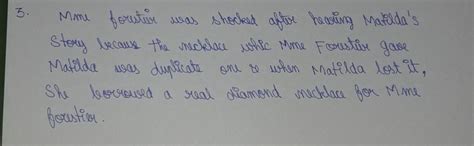 3. Mme forestier was shocked after hearing Matilda's
Story because the necklace whic Mme Forestier gave
Matilda was duplicate one & when Matilda lost it,
She borrowed a real diamond necklace for Mme
forestier.